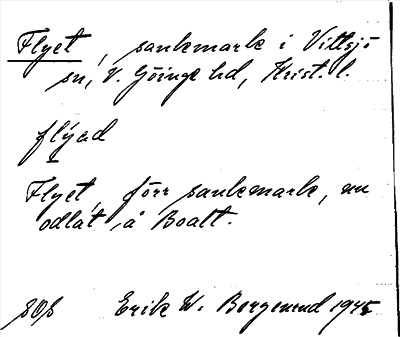 Flyet, sankmark i Vittsjö
sn, V. Göinge hd, Krist. l.
flýǝd
Flyet, förr sankmark, nu
odlat, å Boalt.
Erik W. Bergenrud 1945